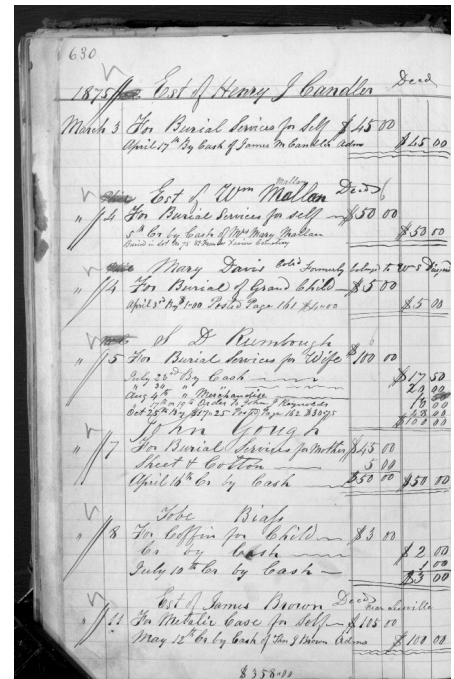 630
1875 Est of Henry J Candler Decd
March 3 For Burial Services for Self $45 00
April 17th By Cash of James M Candler Adms $45 00
Est of Wm Mallan Mallan Decd
" 4 For Burial Services for Self $50 00
5th Cr by Cash of Mrs Mary Mallan $50 00
Buried in Lot No 75 St Francis Xavier Cemetery
Mary Davis Col'd Formerly belongs to W S
" 4 For Burial of Grand Child $5 00
April 3rd By $1.00 Posted Page 161 $4.00 $5 00
S D Rumbough
" 5 For Burial Services for Wife $100 00
July 23d By Cash $17 50
" 30 " " 20 00
Aug 4th " Merchandise
17th " Order to John J Reynolds
Oct 25th By $17.25 Posted Page 162 $30.75
$100 00
John Gough
" 7 For Burial Services for Mother $45 00
Sheet & Cotton 5 00
April 16th Cr by Cash $50 00 $50 00
Tobe Biass
" 8 For Coffin for Child $3 00
Cr by Cash $2 00
July 10th Cr by Cash 1 00
$3 00
Est of James Brown Decd near
" 11 For Metalic Case for Self $105 00
May 12th Cr by Cash of J Brown Adms $100 00
$358.00